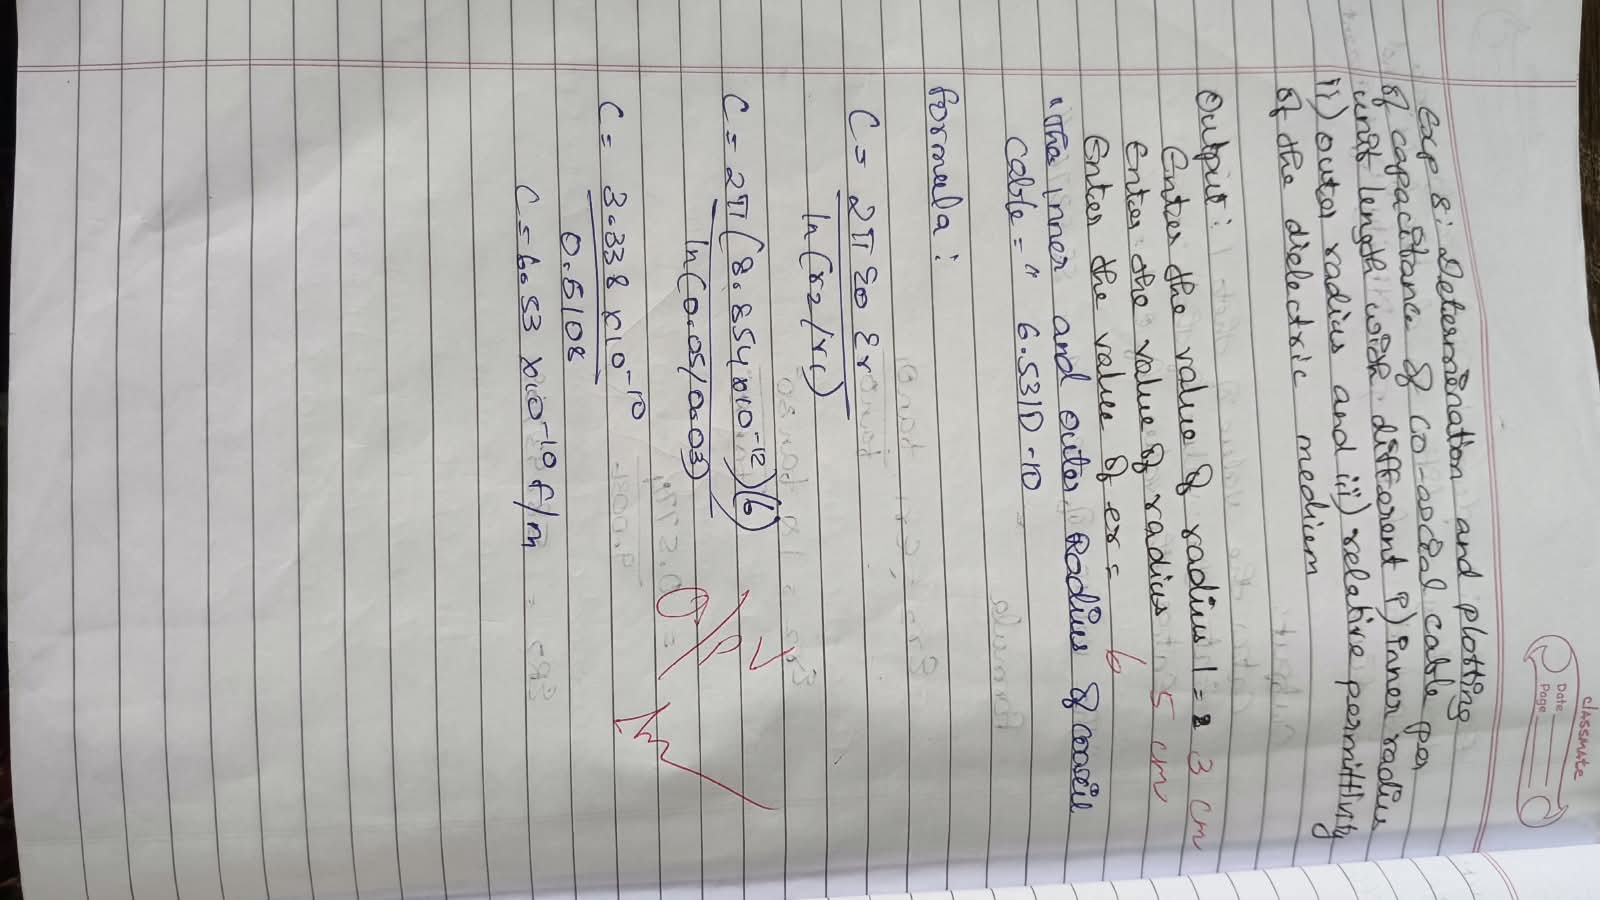 classmate
Date
Page
Exp 8: Determination and plotting
of capacitance of co-axial cable per
unit length with different i) inner radius
ii) outer radius and iii) relative permittivity
of the dielectric medium
Output:
Enter the value of radius 1 = 3 cm
Enter the value of radius 5 cm
Enter the value of er = 6
"The inner and outer radius of coaxial
cable = " 6.531D-10
formula:
C = 2π ε0 εr
ln(r2/r1)
C = 2π (8.854x10^-12)(6)
ln(0.05/0.03)
C = 3.338 x 10^-10
0.5108
C = 6.53 x 10^-10 f/m
O/P ✓